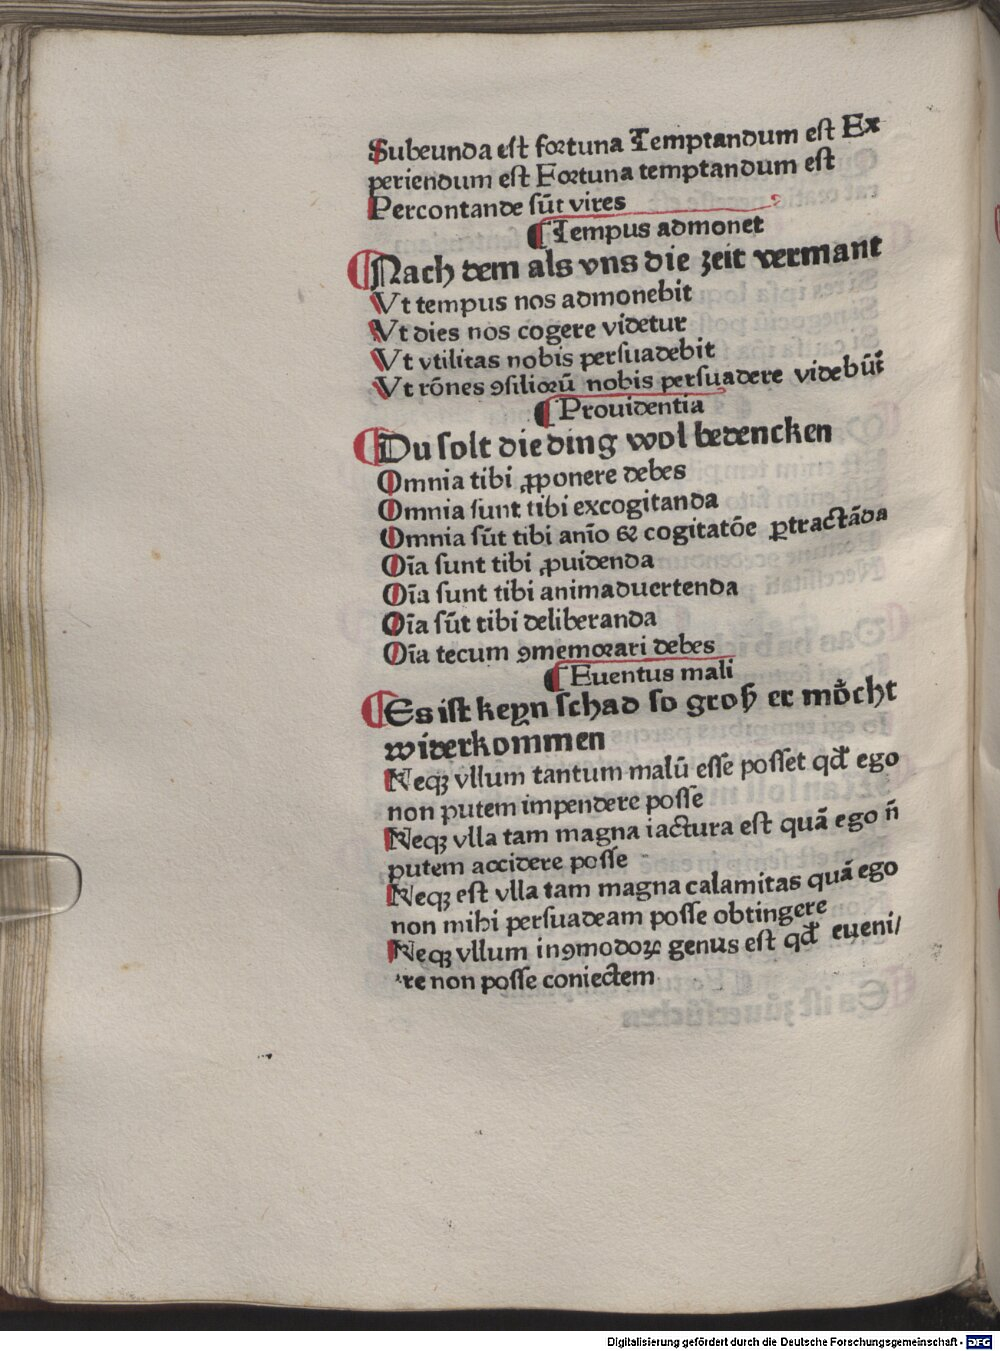 Subeunda est fortuna Temptandum est Ex
periendum est Fortuna temptandum est
Percontande sūt vires
¶ Tempus admonet
¶ Nach dem als vns die zeit vermant
Vt tempus nos admonebit
Vt dies nos cogere videtur
Vt vtilitas nobis persuadebit
Vt rōnes ꝯsiliorū nobis persuadere videbūt᷑
¶ Prouidentia
¶ Du solt die ding wol bedencken
Omnia tibi ꝓponere debes
Omnia sunt tibi excogitanda
Omnia sūt tibi anīo & cogitatōe ꝑtractāda
Oīa sunt tibi ꝓuidenda
Oīa sunt tibi animaduertenda
Oīa sūt tibi deliberanda
Oīa tecum ꝯmemorari debes
¶ Euentus mali
¶ Es ist keyn schad so groß er moͤcht
widerkommen
Neqꝫ vllum tantum malū esse posset qđ ego
non putem impendere posse
Neqꝫ vlla tam magna iactura est quā ego n̄
putem accidere posse
Neqꝫ est vlla tam magna calamitas quā ego
non mihi persuadeam posse obtingere
Neqꝫ vllum inꝯmodoꝝ genus est qđ eueni/
re non posse coniectem
Digitalisierung gefördert durch die Deutsche Forschungsgemeinschaft - DFG